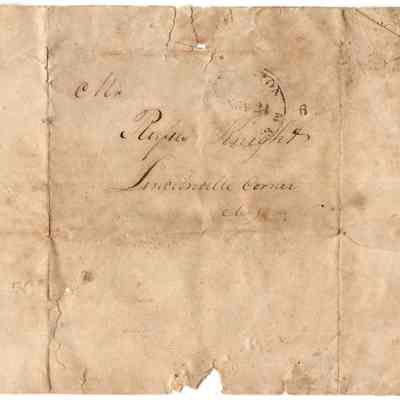 Mr
Rufus Knight
Lincolnville Corner
6